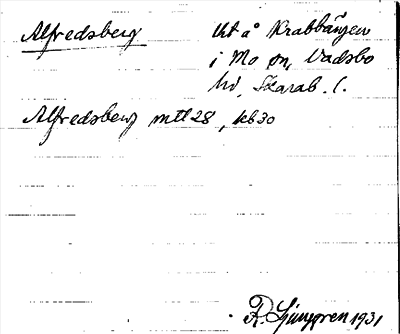 Alfredsberg
t å Krabbängen
i Mo sn, Vadsbo
hd, Skarab. l.
Alfredsberg mtl 28, kb 30
R. Ljunggren 1931